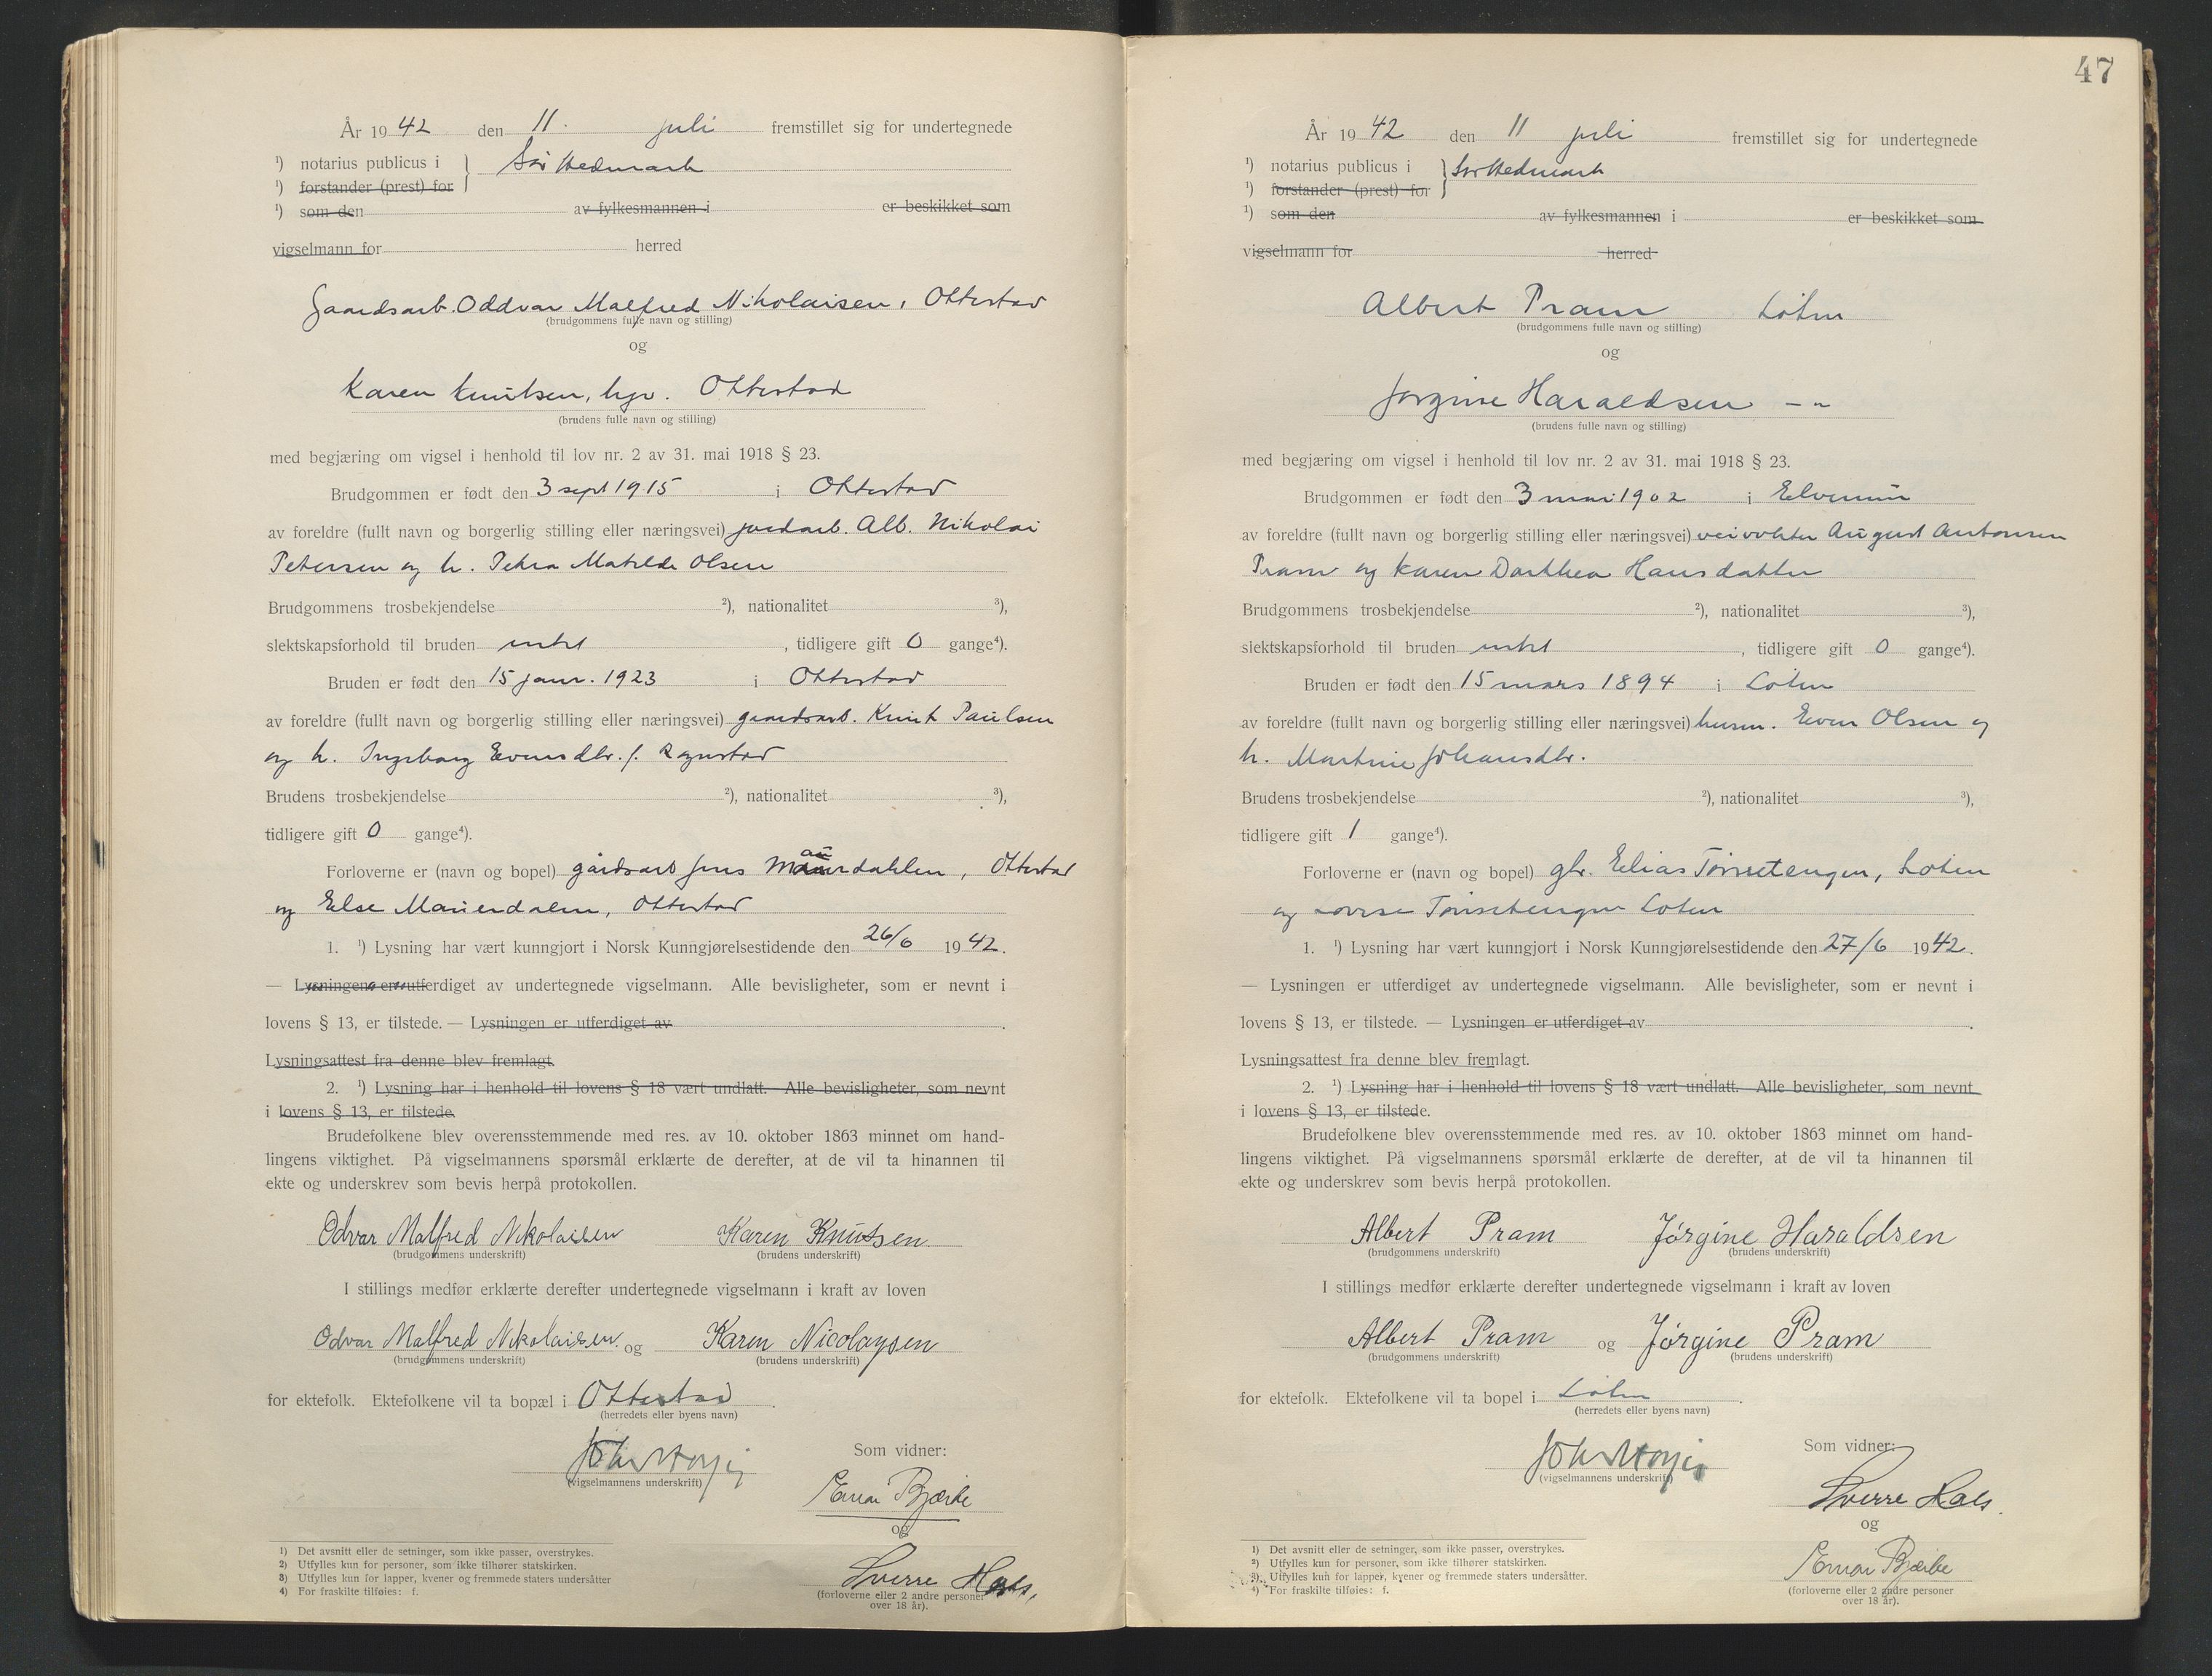 År 1942 den 11. juli fremstillet sig for undertegnede
¹) notarius publicus i } Sør Hedmark
¹) forstander (prest) for
¹) som den av fylkesmannen i er beskikket som
vigselmann for herred
Gaardsarb. Oddvar Malfred Nikolaisen, Ottestad
(brudgommens fulle navn og stilling)
og
Karen Knutsen, hgr. Ottestad
(brudens fulle navn og stilling)
med begjæring om vigsel i henhold til lov nr. 2 av 31. mai 1918 § 23.
Brudgommen er født den 3 sept 1915 i Ottestad
av foreldre (fullt navn og borgerlig stilling eller næringsvei) jordarb. Alb. Nikolai
Petersen og h. Petra Matilde Olsen
Brudgommens trosbekjendelse ²), nationalitet ³),
slektskapsforhold til bruden intet, tidligere gift 0 gange⁴).
Bruden er født den 15 janr. 1923 i Ottestad
av foreldre (fullt navn og borgerlig stilling eller næringsvei) gaardsarb. Knut Paulsen
og h. Ingeborg Evensdtr. f. Rognstad
Brudens trosbekjendelse ²), nationalitet ³),
tidligere gift 0 gange⁴).
Forloverne er (navn og bopel) gårdsarb Jens Maurdahlen, Ottestad
og Else Maurdalen, Ottestad
1. ¹) Lysning har vært kunngjort i Norsk Kunngjørelsestidende den 26/6 1942.
— Lysningen er utferdiget av undertegnede vigselmann. Alle bevisligheter, som er nevnt i
lovens § 13, er tilstede. — Lysningen er utferdiget av .
Lysningsattest fra denne blev fremlagt.
2. ¹) Lysning har i henhold til lovens § 18 vært undlatt. Alle bevisligheter, som nevnt
i lovens § 13, er tilstede.
Brudefolkene blev overensstemmende med res. av 10. oktober 1863 minnet om hand-
lingens viktighet. På vigselmannens spørsmål erklærte de derefter, at de vil ta hinannen til
ekte og underskrev som bevis herpå protokollen.
Odvar Malfred Nikolaisen Karen Knutsen
(brudgommens underskrift) (brudens underskrift)
I stillings medfør erklærte derefter undertegnede vigselmann i kraft av loven
Odvar Malfred Nikolaisen. og Karen Nicolaysen
(brudgommens underskrift) (brudens underskrift)
for ektefolk. Ektefolkene vil ta bopæl i Ottestad.
(herredets eller byens navn)
Som vidner:
(vigselmannens underskrift)
Einar Bjærke
og
Sverre Hals.
(forloverne eller 2 andre personer
over 18 år).
1) Det avsnitt eller de setninger, som ikke passer, overstrykes.
2) Utfylles kun for personer, som ikke tilhører statskirken.
3) Utfylles kun for lapper, kvener og fremmede staters undersåtter
4) For fraskilte tilføies: f.
47
År 1942 den 11 juli fremstillet sig for undertegnede
¹) notarius publicus i } Sør Hedmark
¹) forstander (prest) for
¹) som den av fylkesmannen i er beskikket som
vigselmann for herred
Albert Pram Løten
(brudgommens fulle navn og stilling)
og
Jørgine Haraldsen – " –
(brudens fulle navn og stilling)
med begjæring om vigsel i henhold til lov nr. 2 av 31. mai 1918 § 23.
Brudgommen er født den 3 mai 1902 i Elverum
av foreldre (fullt navn og borgerlig stilling eller næringsvei) veivokter August Antonsen
Pram og Karen Dorthea Hansdatter
Brudgommens trosbekjendelse ²), nationalitet ³),
slektskapsforhold til bruden intet, tidligere gift 0 gange⁴).
Bruden er født den 15 mars 1894 i Løten
av foreldre (fullt navn og borgerlig stilling eller næringsvei) husm. Even Olsen og
h. Martine Johansdtr.
Brudens trosbekjendelse ²), nationalitet ³),
tidligere gift 1 gange⁴).
Forloverne er (navn og bopel) gbr. Elias Tønsetengen, Løten
og Lovise Tønsetengen Løten
1. ¹) Lysning har vært kunngjort i Norsk Kunngjørelsestidende den 27/6 1942.
— Lysningen er utferdiget av undertegnede vigselmann. Alle bevisligheter, som er nevnt i
lovens § 13, er tilstede. — Lysningen er utferdiget av .
Lysningsattest fra denne blev fremlagt.
2. ¹) Lysning har i henhold til lovens § 18 vært undlatt. Alle bevisligheter, som nevnt
i lovens § 13, er tilstede.
Brudefolkene blev overensstemmende med res. av 10. oktober 1863 minnet om hand-
lingens viktighet. På vigselmannens spørsmål erklærte de derefter, at de vil ta hinannen til
ekte og underskrev som bevis herpå protokollen.
Albert Pram Jørgine Haraldsen
(brudgommens underskrift) (brudens underskrift)
I stillings medfør erklærte derefter undertegnede vigselmann i kraft av loven
Albert Pram og Jørgine Pram
(brudgommens underskrift) (brudens underskrift)
for ektefolk. Ektefolkene vil ta bopel i Løten.
(herredets eller byens navn)
Som vidner:
(vigselmannens underskrift)
Sverre Hals.
og
Einar Bjærke
(forloverne eller 2 andre personer
over 18 år).
1) Det avsnitt eller de setninger, som ikke passer, overstrykes.
2) Utfylles kun for personer, som ikke tilhører statskirken.
3) Utfylles kun for lapper, kvener og fremmede staters undersåtter.
4) For fraskilte tilføies: f.